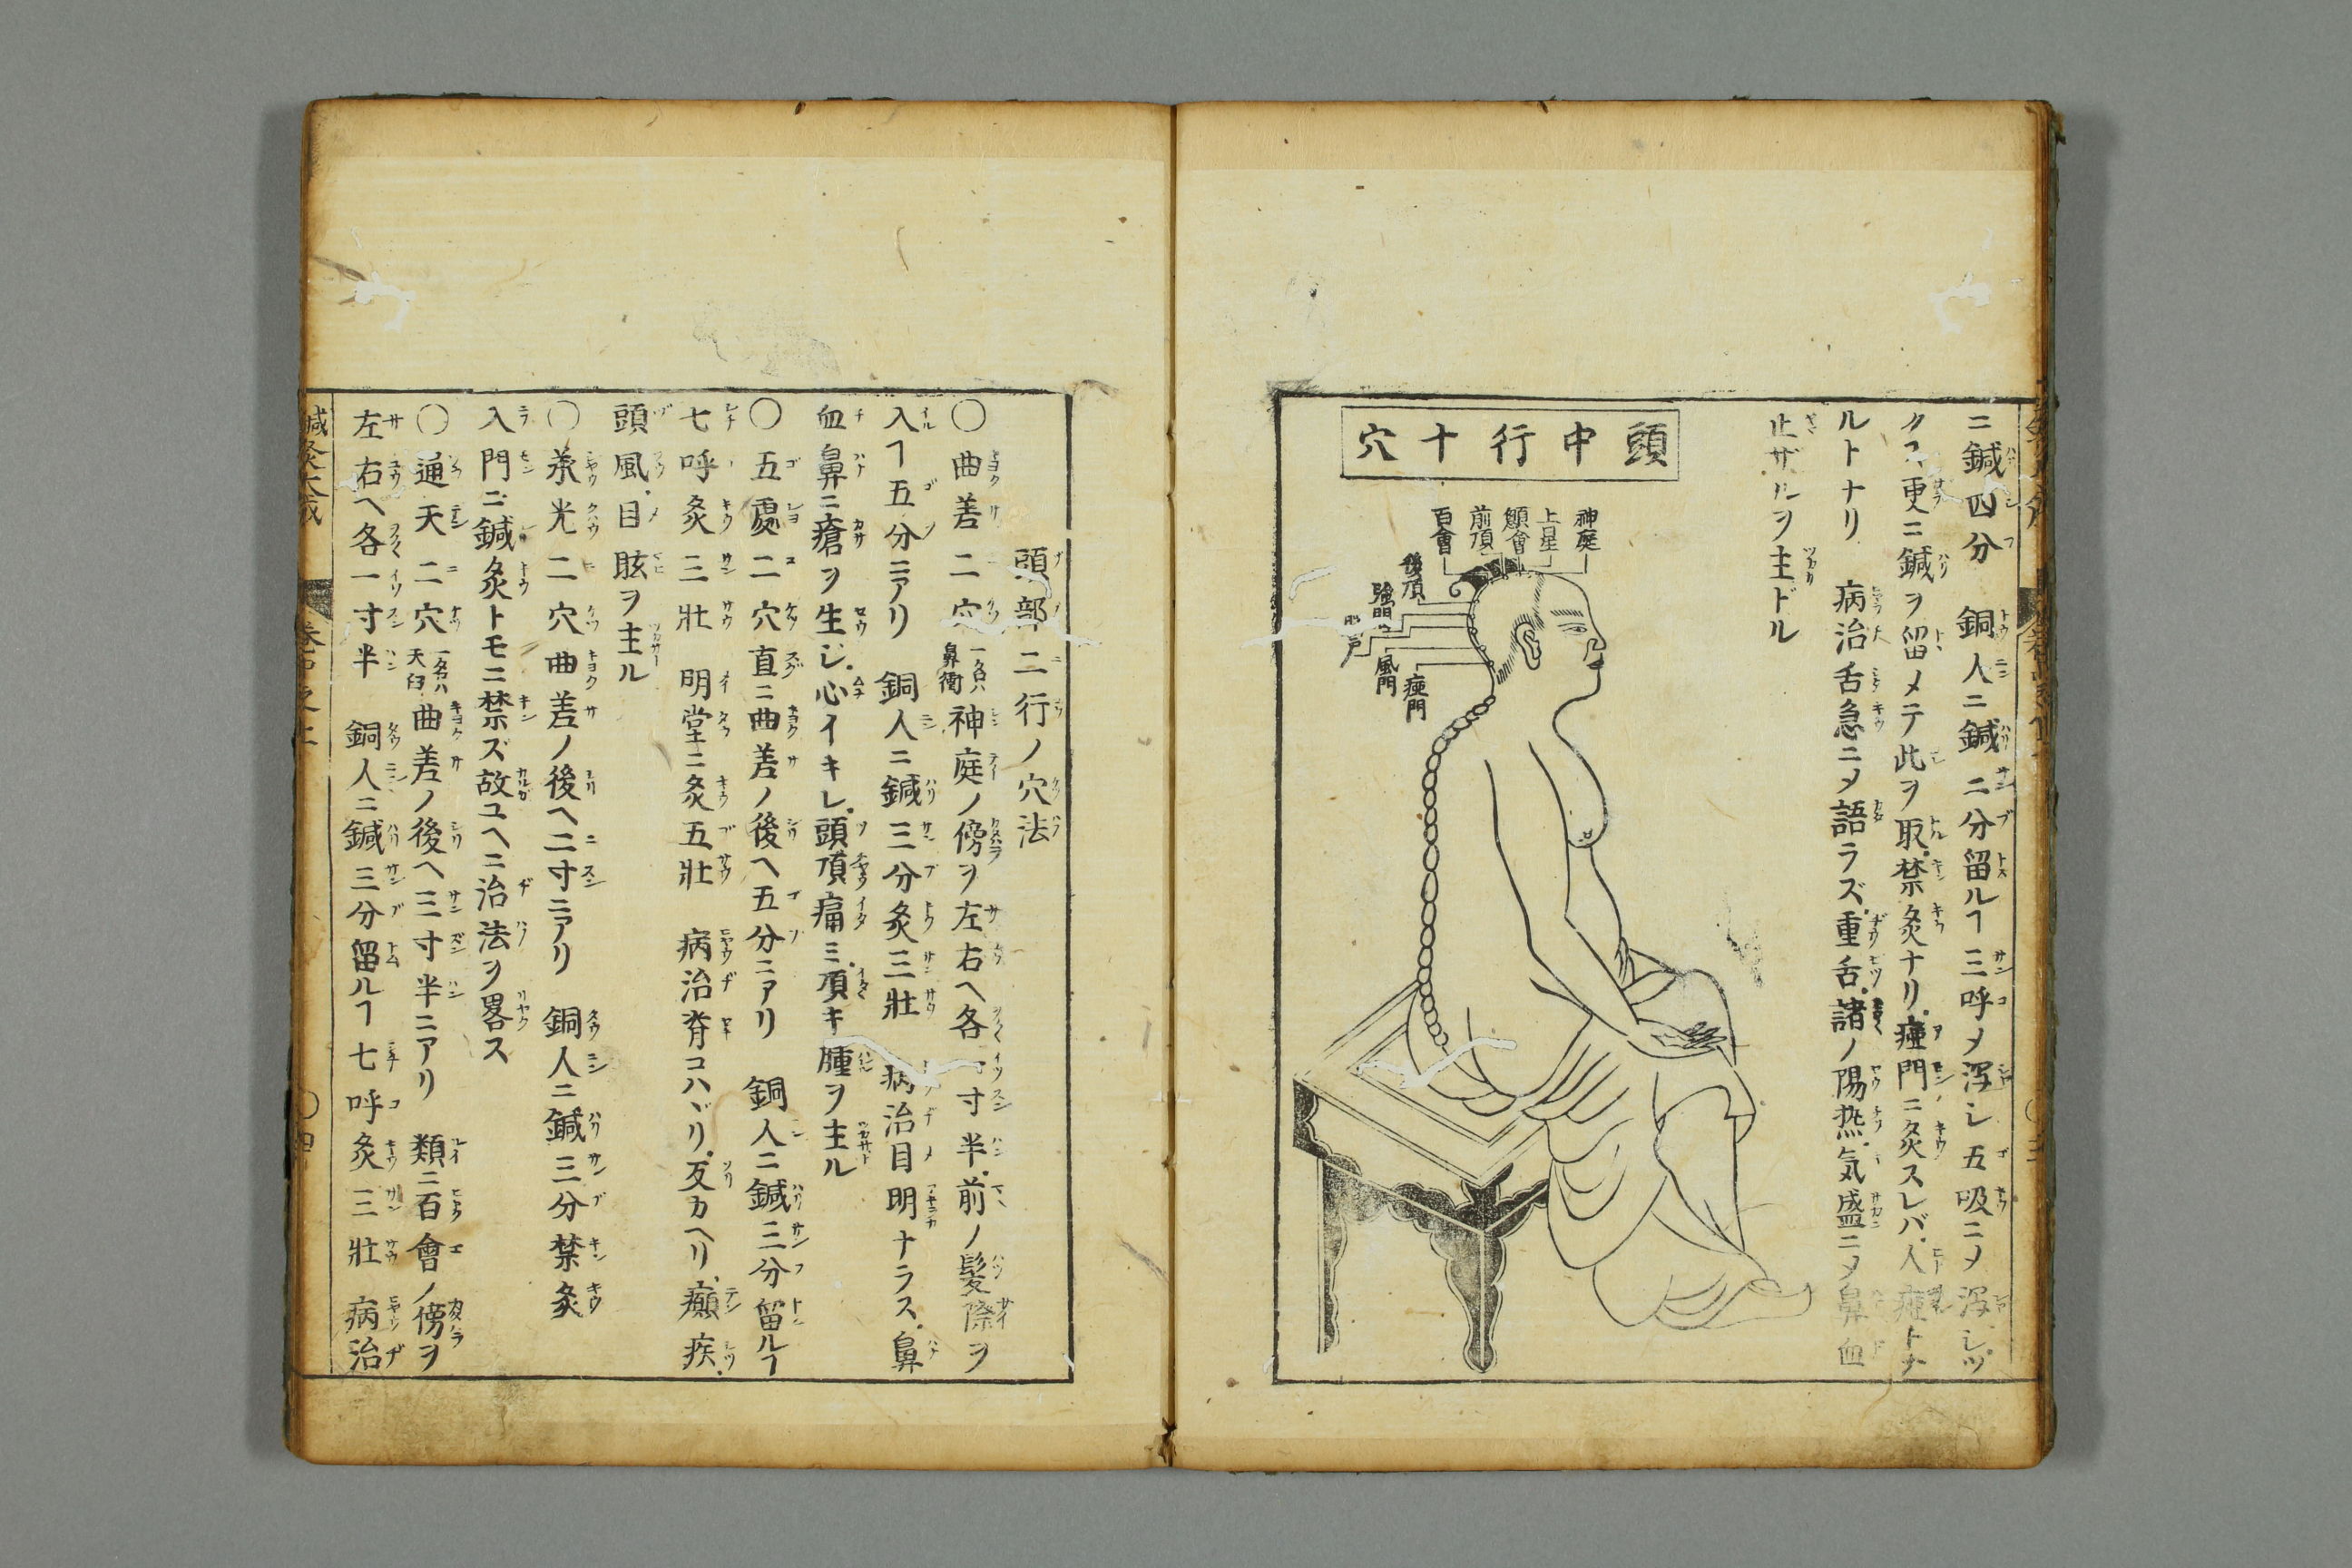 ニ鍼四分　銅人ニ鍼二分留ルヿ三呼〆瀉シ五吸ニ〆瀉シツ
クス更ニ鍼ヲ留メテ此ヲ取禁灸ナリ瘂門ニ灸スレバ人瘂トナ
ルトナリ　病治舌急ニ〆語ラズ重舌諸ノ陽熱気盛ニ〆鼻血
止ザルヲ主ドル
頭中行十穴
神庭
上星
顖會
前頂
百會
後頂
強門
風門
瘂門
頭部二行ノ穴法
〇曲差二穴 一名ハ鼻衝 神庭ノ傍ヲ左右ヘ各一寸半前ノ髪際ヲ
入ヿ五分ニアリ　銅人ニ鍼三分灸三壯　病治目明ナラス鼻
血鼻ニ瘡ヲ生ジ心イキレ頭頂痛ミ項キ腫ヲ主ル
〇五處二穴直ニ曲差ノ後ヘ五分ニアリ　銅人ニ鍼三分留ルヿ
七呼灸三壯　明堂ニ灸五壯　病治脊コハヾリ反カヘリ癲疾
頭風目眩ヲ主ル
〇兼光二穴曲差ノ後ヘ二寸ニアリ　銅人ニ鍼三分禁灸
入門ニ鍼灸トモニ禁ズ故ユヘニ治法ヲ畧ス
〇通天二穴 一名ハ天臼 曲差ノ後ヘ三寸半ニアリ　類ニ百會ノ傍ヲ
左右ヘ各一寸半　銅人ニ鍼三分留ルヿ七呼灸三壯　病治
鍼灸大成　巻中之上　〇四